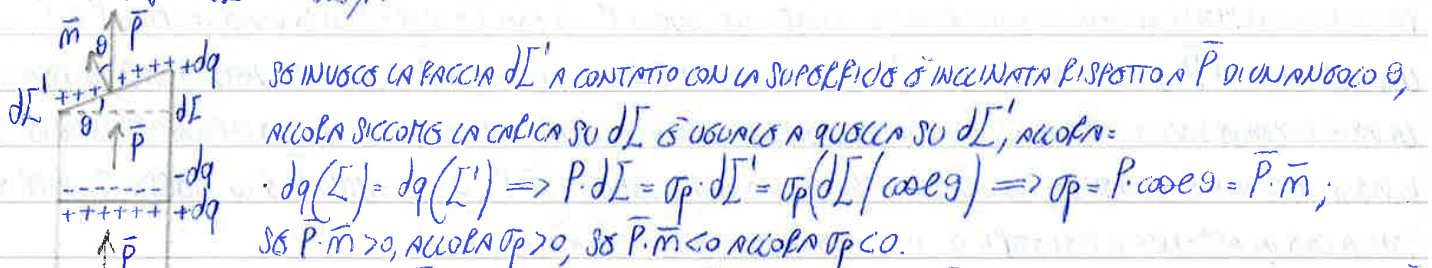 n̄ θ P̄
++++ +dq
SE INVECE LA FACCIA dΣ' A CONTATTO CON LA SUPERFICIE È INCLINATA RISPETTO A P̄ DI UN ANGOLO θ,
dΣ' +++ θ dΣ
ALLORA SICCOME LA CARICA SU dΣ È UGUALE A QUELLA SU dΣ', ALLORA:
P̄
-dq
· dq(Σ) = dq(Σ') => P·dΣ = σp·dΣ' = σp(dΣ/cosθ) => σp = P·cosθ = P̄·n̄;
++++++ +dq
SE P̄·n̄ >0, ALLORA σp>0, SE P̄·n̄ <0 ALLORA σp<0.
P̄